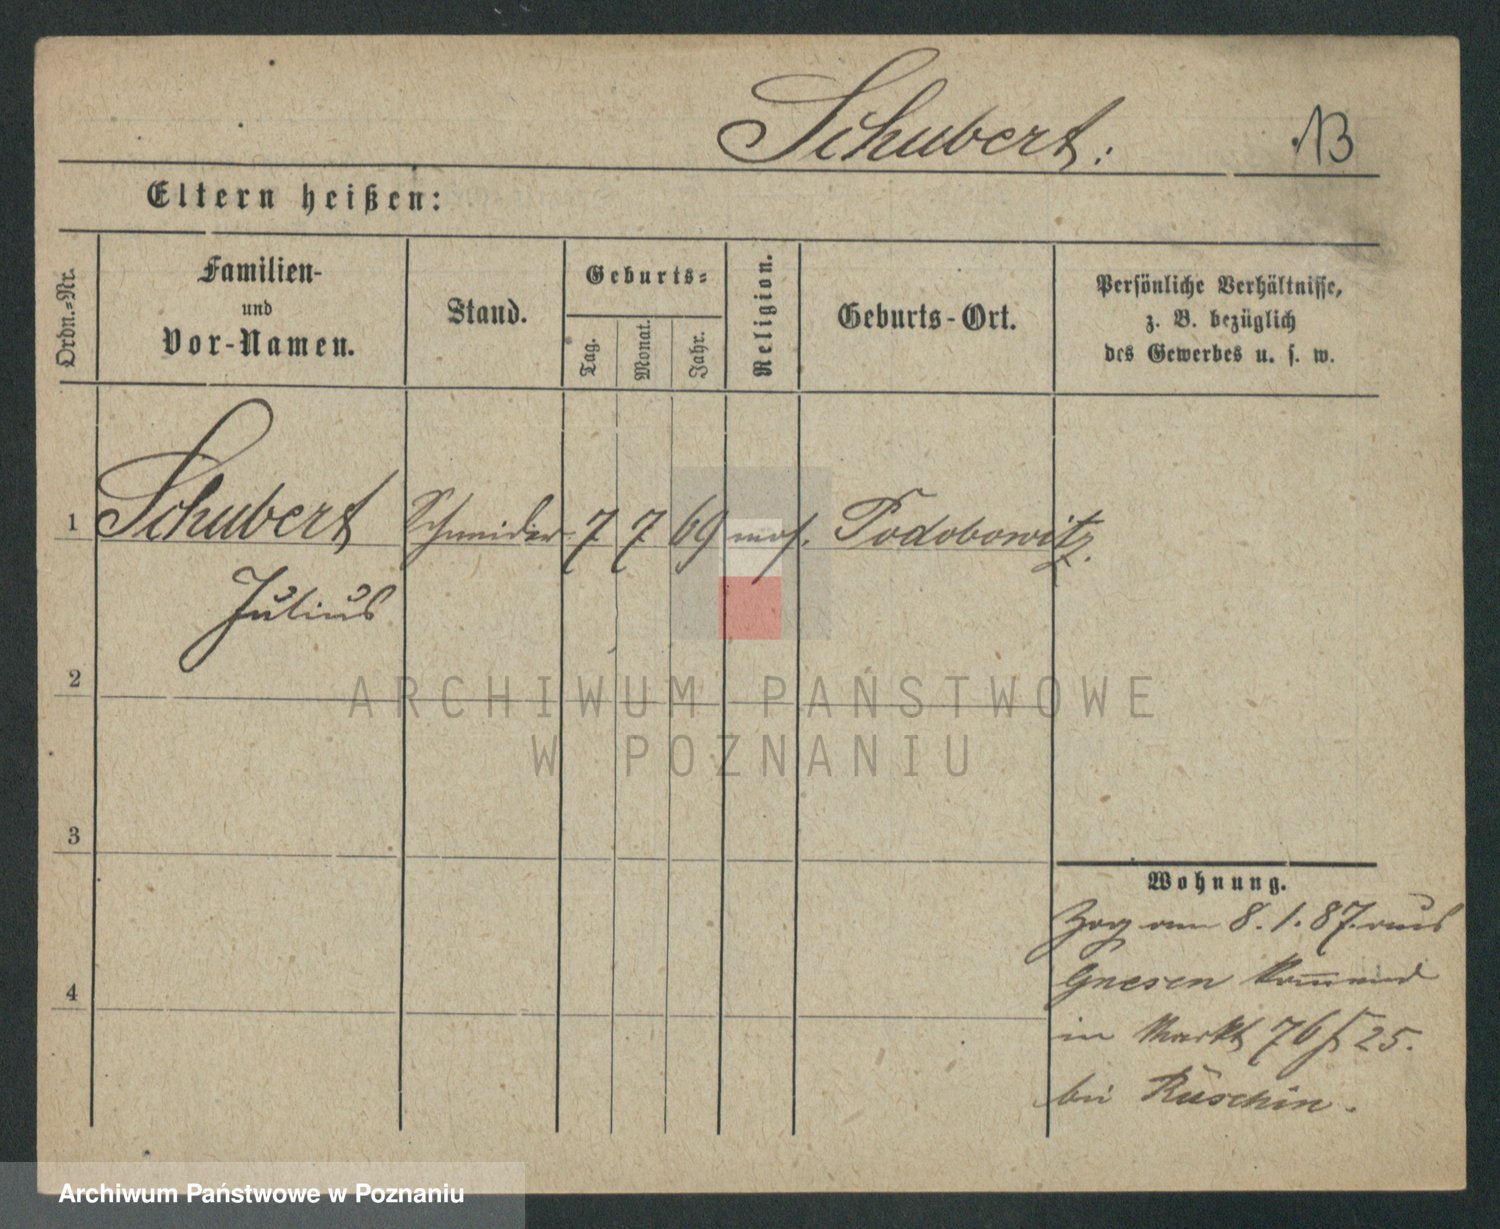 Schubert:
13
Eltern heißen:
Ordn.-Nr.
Familien-
und
Vor-Namen.
Stand.
Geburts-
Tag.
Monat.
Jahr.
Religion.
Geburts-Ort.
Persönliche Verhältnisse,
z. B. bezüglich
des Gewerbes u. s. w.
1 Schubert Schneider 7 7 69 mos. Podobowitz.
Julius
2
ARCHIWUM PAŃSTWOWE
W POZNANIU
3
Wohnung.
Zog am 8.1.87. aus
Gnesen kommend
4
in Markt 76/25.
bei Rüschin.
Archiwum Państwowe w Poznaniu